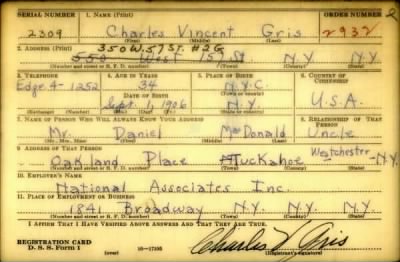 SERIAL NUMBER 1. NAME (Print) ORDER NUMBER
2309 Charles Vincent Gris 2932
(First) (Middle) (Last)
2. ADDRESS (Print) 350 W. 57 St. #2G
550 West 1st St. N.Y. N.Y.
(Number and street or R. F. D. number) (Town) (County) (State)
3. TELEPHONE 4. AGE IN YEARS 5. PLACE OF BIRTH 6. COUNTRY OF CITIZENSHIP
Edge 4-1252 34 N.Y.C.
DATE OF BIRTH (Town or county)
Sept. 1, 1906 N.Y. U.S.A.
(Exchange) (Number) (Mo.) (Day) (Yr.) (State or country)
7. NAME OF PERSON WHO WILL ALWAYS KNOW YOUR ADDRESS 8. RELATIONSHIP OF THAT PERSON
Mr. Daniel MacDonald Uncle
(Mr., Mrs., Miss) (First) (Middle) (Last)
9. ADDRESS OF THAT PERSON
Oakland Place Tuckahoe Westchester N.Y.
(Number and street or R. F. D. number) (Town) (County) (State)
10. EMPLOYER'S NAME
National Associates Inc.
11. PLACE OF EMPLOYMENT OR BUSINESS
1841 Broadway N.Y. N.Y. N.Y.
(Number and street or R. F. D. number) (Town) (County) (State)
I AFFIRM THAT I HAVE VERIFIED ABOVE ANSWERS AND THAT THEY ARE TRUE.
REGISTRATION CARD
D. S. S. Form 1 16-17105 Charles V Gris
(Registrant's signature)